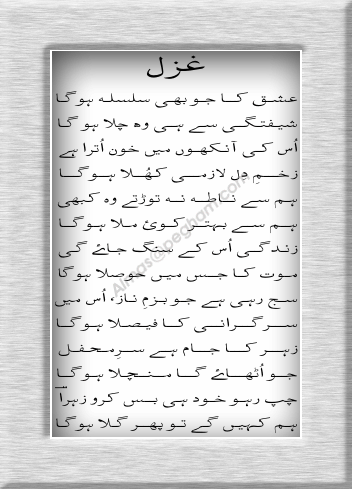 غزل
عشق کا جو بھی سلسلہ ہوگا
شیفتگی سے ہی وہ چلا ہو گا
اُس کی آنکھوں میں خون اُترا ہے
زخمِ دل لازمی کھُلا ہوگا
ہم سے ناطہ نہ توڑتے وہ کبھی
ہم سے بہتر کوئ ملا ہوگا
زندگی اُس کے سنگ جاۓ گی
موت کا جس میں حوصلا ہوگا
سج رہی ہے جو بزمِ ناز، اُس میں
سرگرانی کا فیصلا ہوگا
زہر کا جام ہے سرِمحفل
جو اُٹھاۓ گا منچلا ہوگا
چپ رہو خود ہی بس کرو زہرا
ہم کہیں گے تو پھر گلا ہوگا